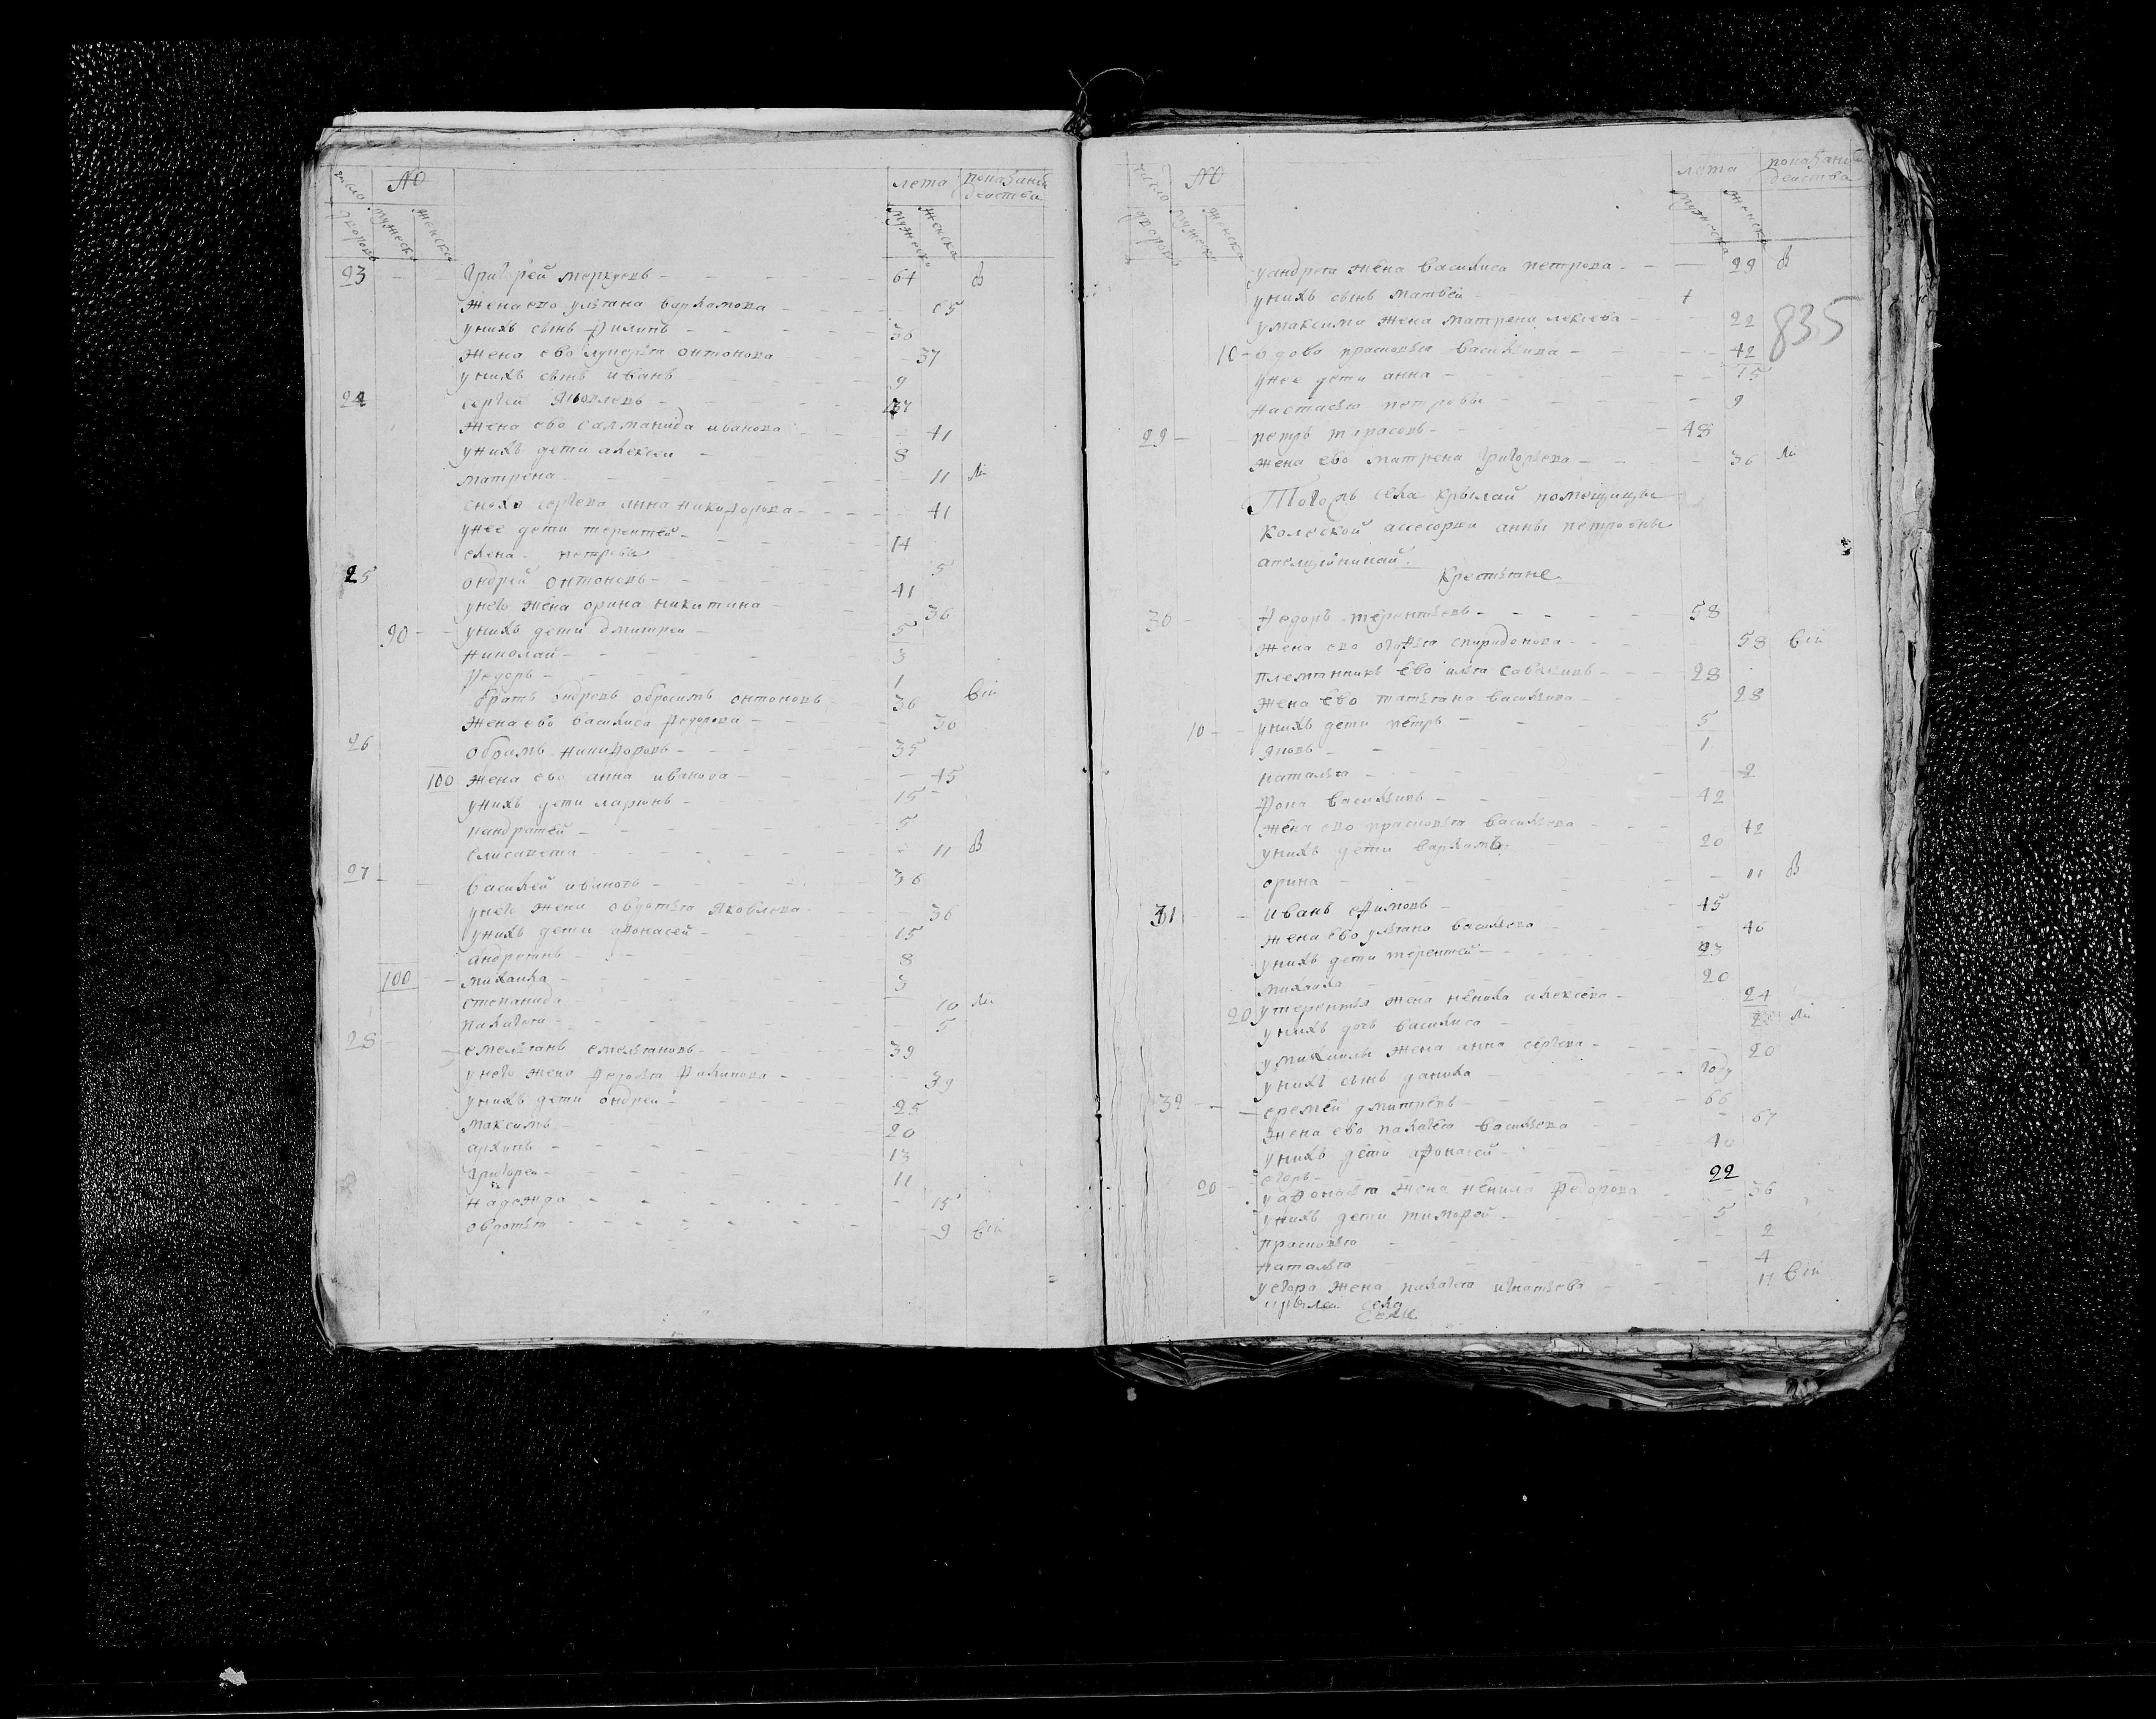 число дворовъ № мужеска женска лета мужеска женска показани действа
23 Григорей меркуевъ 64 в
жена ево ульяна варламова 65
у нихъ сынъ филипъ 36
жена ево лукерья онтонова 37
у нихъ сынъ иванъ 9
24 сергей яковлевъ
жена ево саламанида иванова 41
у нихъ дети алексеи 8
матрена 11
сноха сергева анна никифорова 41
у нее дети терентей 14
елена петровы 5
25 ондрей онтоновъ 41
у него жена орина никитина 36
90 у нихъ дети дмитреи 5
николай 3
федоръ 1
братъ ондревъ обросимъ онтоновъ 36
жена ево василиса федорова 30
26 обрамъ никифоровъ 35
100 жена ево анна иванова 45
у нихъ дети ларионъ 15
кандратей 5
елисавета 11 в
27 василей ивановъ 36
у него жена овдотья яковлева 36
у нихъ дети афонасей 15
андреянъ 8
100 михаила 3
степанида 10
палагея 5
28 емельянъ емельяновъ 39
у него жена федосья филипова 39
у нихъ дети ондреи 25
максимъ 20
архипъ 13
григореи 11
надежда 15
овдотья 9
число дворовъ № мужеска женска лета мужеска женска показани действа
у андрея жена василиса петрова 29 в
у нихъ сынъ матвеи
у максима жена матрена лексева 22
835
10 вдова прасковья васильива 42
у нее дети анна 15
настасья петровы 9
29 петръ тарасовъ 48
жена ево матрена григорьева 36
Тогожъ села крылай помещицы
колеской ассесорши анны петровны
Крестьяне
30 федоръ терентьевъ 58
жена ево огафья спиридонова 58
племянникъ ево илья савельивъ 28
жена ево татьяна васильива 28
10 у нихъ дети петръ 5
яковъ 1
наталья 2
фока васильивъ 42
жена ево прасковья васильева 42
у нихъ дети варламъ 20
орина 11 в
31 иванъ ефимовъ 45
жена ево ульяна васильева 46
у нихъ дети терентей 23
михаила 20
20 у терентья жена ненила алексева 24
у нихъ дочь василиса
у михаилы жена анна сергева 20
у нихъ сынъ данила году
32 еремей дмитревъ 66
жена ево палагея васильева 67
у нихъ дети афонасей 40
20 егоръ 22
у афонасья жена ненила федорова 36
у нихъ дети тимофей 5
прасковья 2
наталья 4
у егора жена палагея игнатьева 17
села
Села